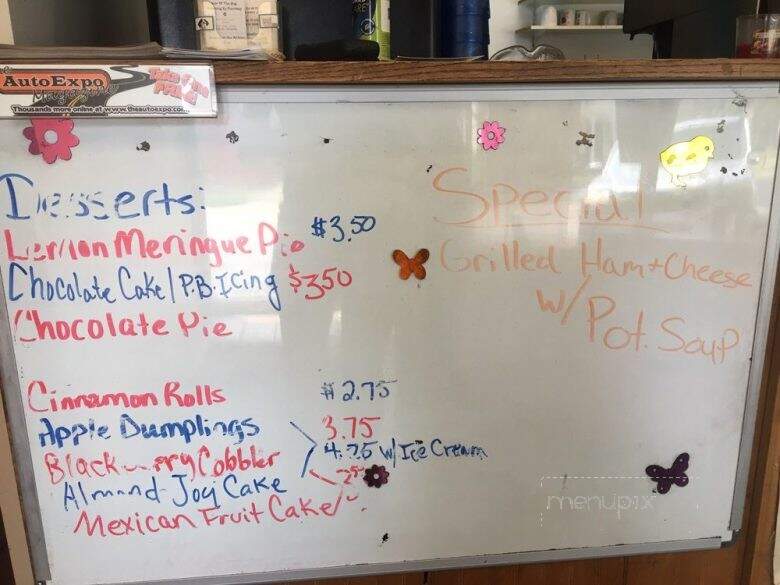 AutoExpo
Magazine
Take One
FREE!
Thousands more online at www.theautoexpo.com
Desserts:
Lemon Meringue Pie $3.50
Chocolate Cake/P.B. Icing $3.50
Chocolate Pie
Cinnamon Rolls $2.75
Apple Dumplings 3.75
Blackberry Cobbler 4.75 w/ Ice Cream
Almond Joy Cake
Mexican Fruit Cake
Special
Grilled Ham + Cheese
w/ Pot. Soup
menupix